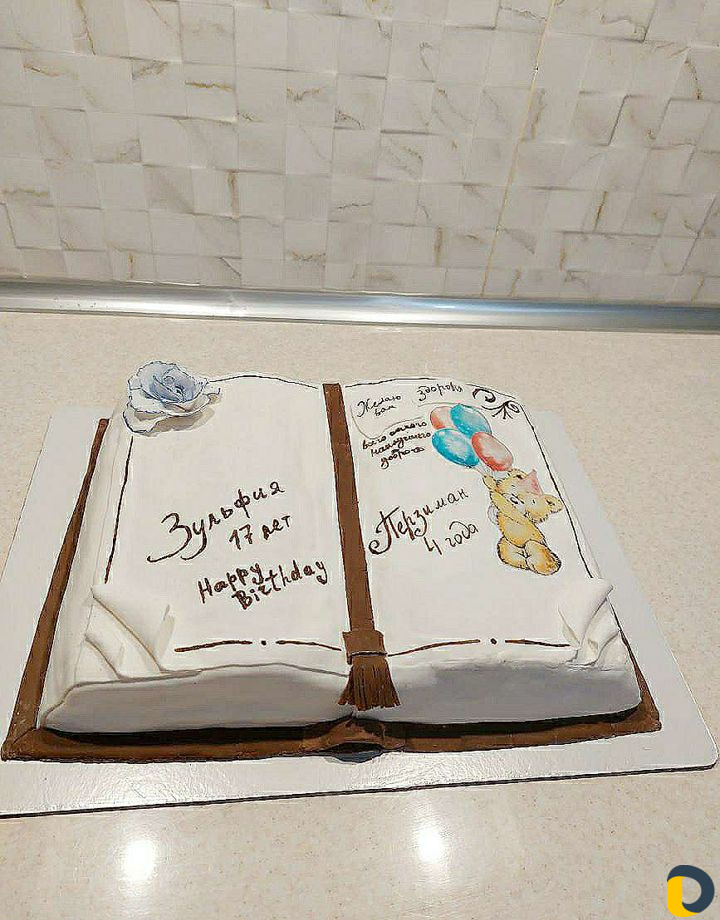 Зульфия
17 лет
Happy
Birthday
Желаю Здоровя
вам
всего самого
наилучшего
доброго
Перзиман
4 года